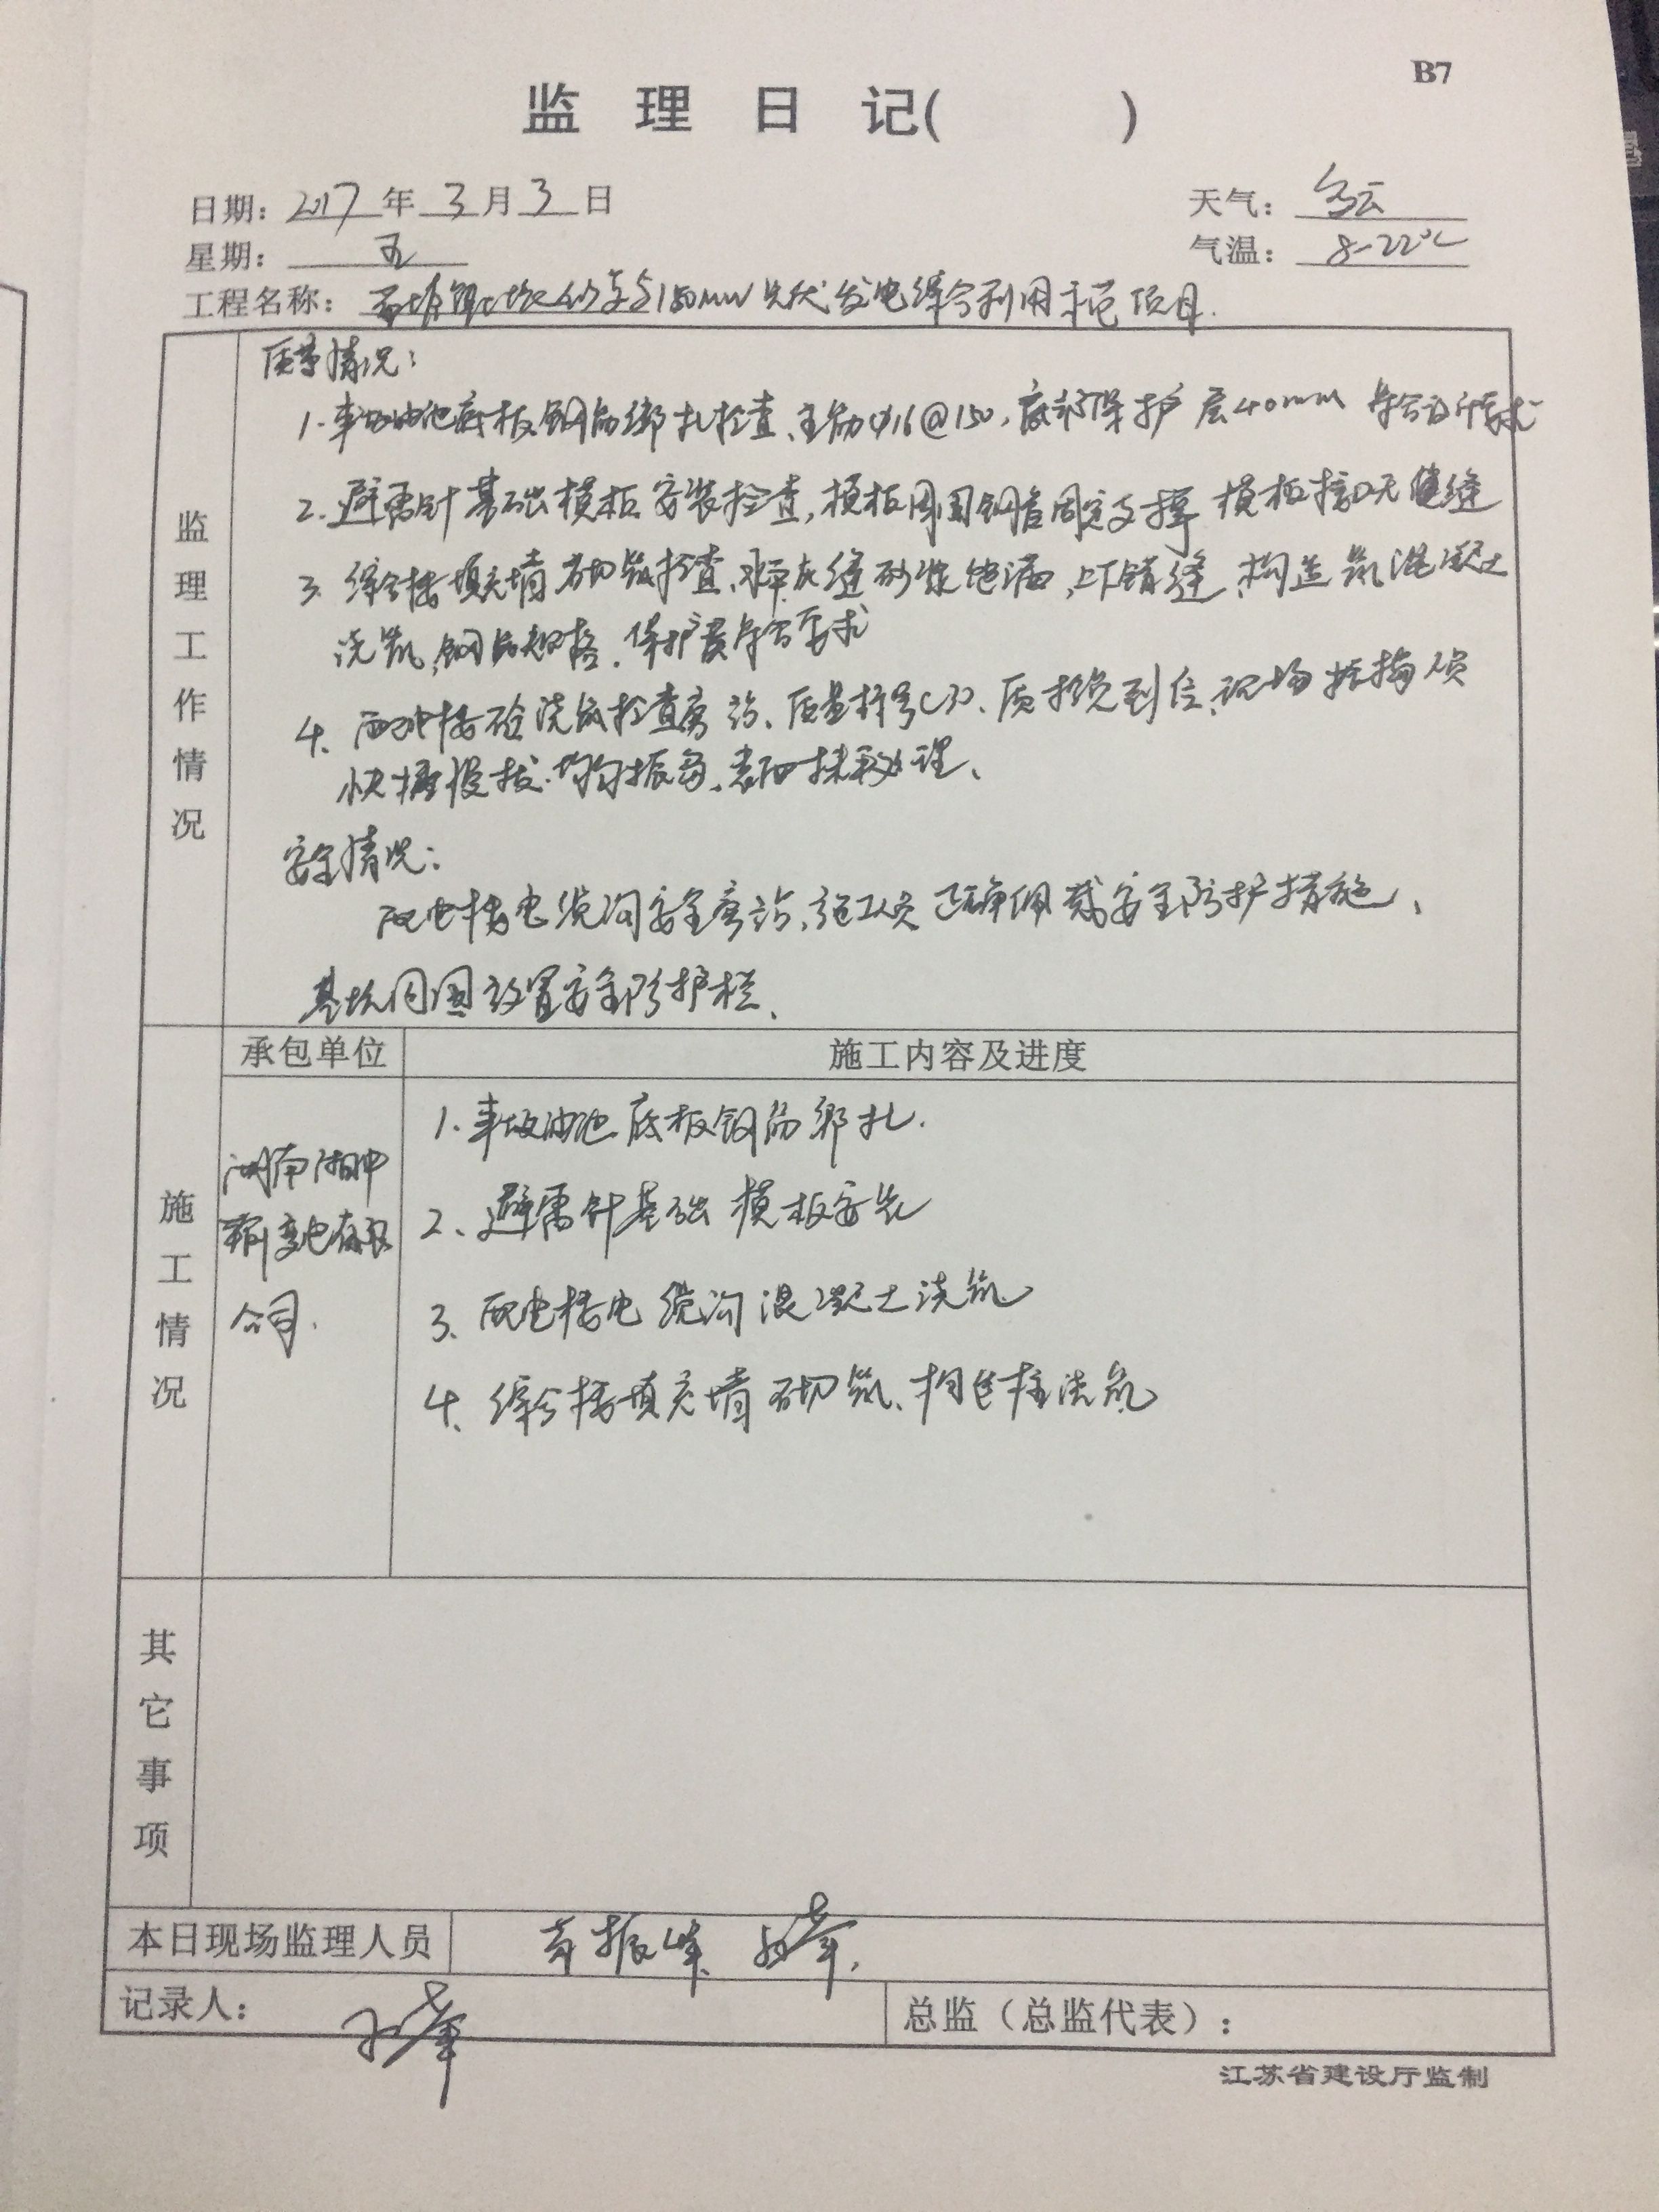 B7
监 理 日 记( )
日期: 2017 年 3 月 3 日 天气: 多云
星期: 五 气温: 8-22℃
工程名称: 150MW光伏发电综合利用示范项目.
监理工作情况
质量情况:
1. 事故油池底板钢筋绑扎检查、主筋φ16@150, 底部保护层40mm 符合设计要求
2. 避雷针基础模板安装检查, 模板周围钢管固定支撑 模板接口无缝
3. 综合楼填充墙砌筑检查, 水平灰缝砂浆饱满, 上下错缝, 构造 混凝土
浇筑, 钢筋规格、保护层符合要求
4. 配电楼砼浇筑检查旁站、质量标号C30、质检员到位、现场
快插慢拔、均匀振、表面抹 处理、
安全情况:
配电楼电缆沟安全旁站, 施工人员正确佩戴安全防护措施、
基坑周围设置安全防护栏、
施工情况
承包单位 施工内容及进度
湖南湘中
输变电有限
公司.
1. 事故油池底板钢筋绑扎.
2、避雷针基础模板安装
3、配电楼电缆沟混凝土浇筑
4、综合楼填充墙砌筑、构造柱浇筑
其它事项
本日现场监理人员 振峰
记录人:
总监（总监代表）:
江苏省建设厅监制